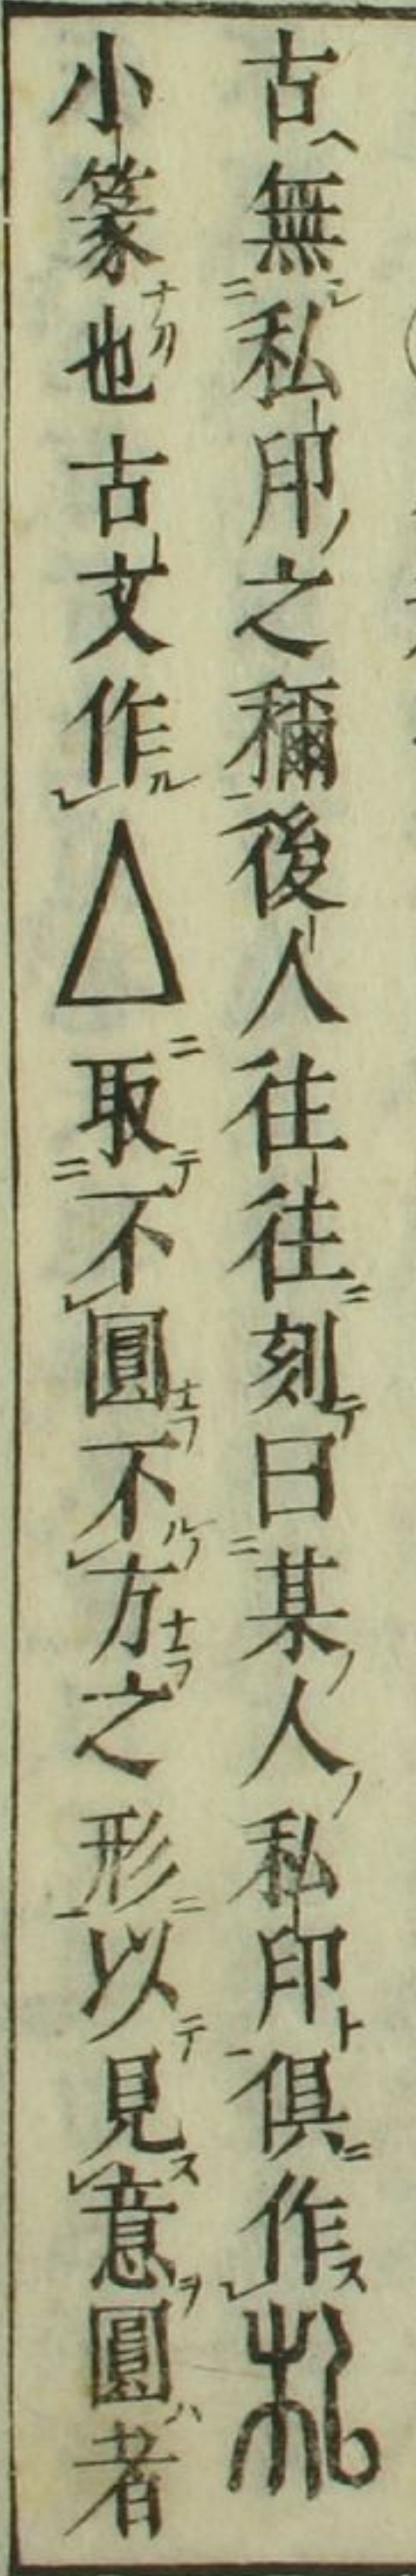 古ヘ無シ二私印ノ之稱一後人往往ニ刻テ曰二某ノ人ノ私印ト一俱ニ作スレ私
小篆也ナリ古文作ルレ△ニ取テ二不レ圓ナラ不ルノレ方ナラ之形ニ一以テ見スレ意ヲ圓ハ者